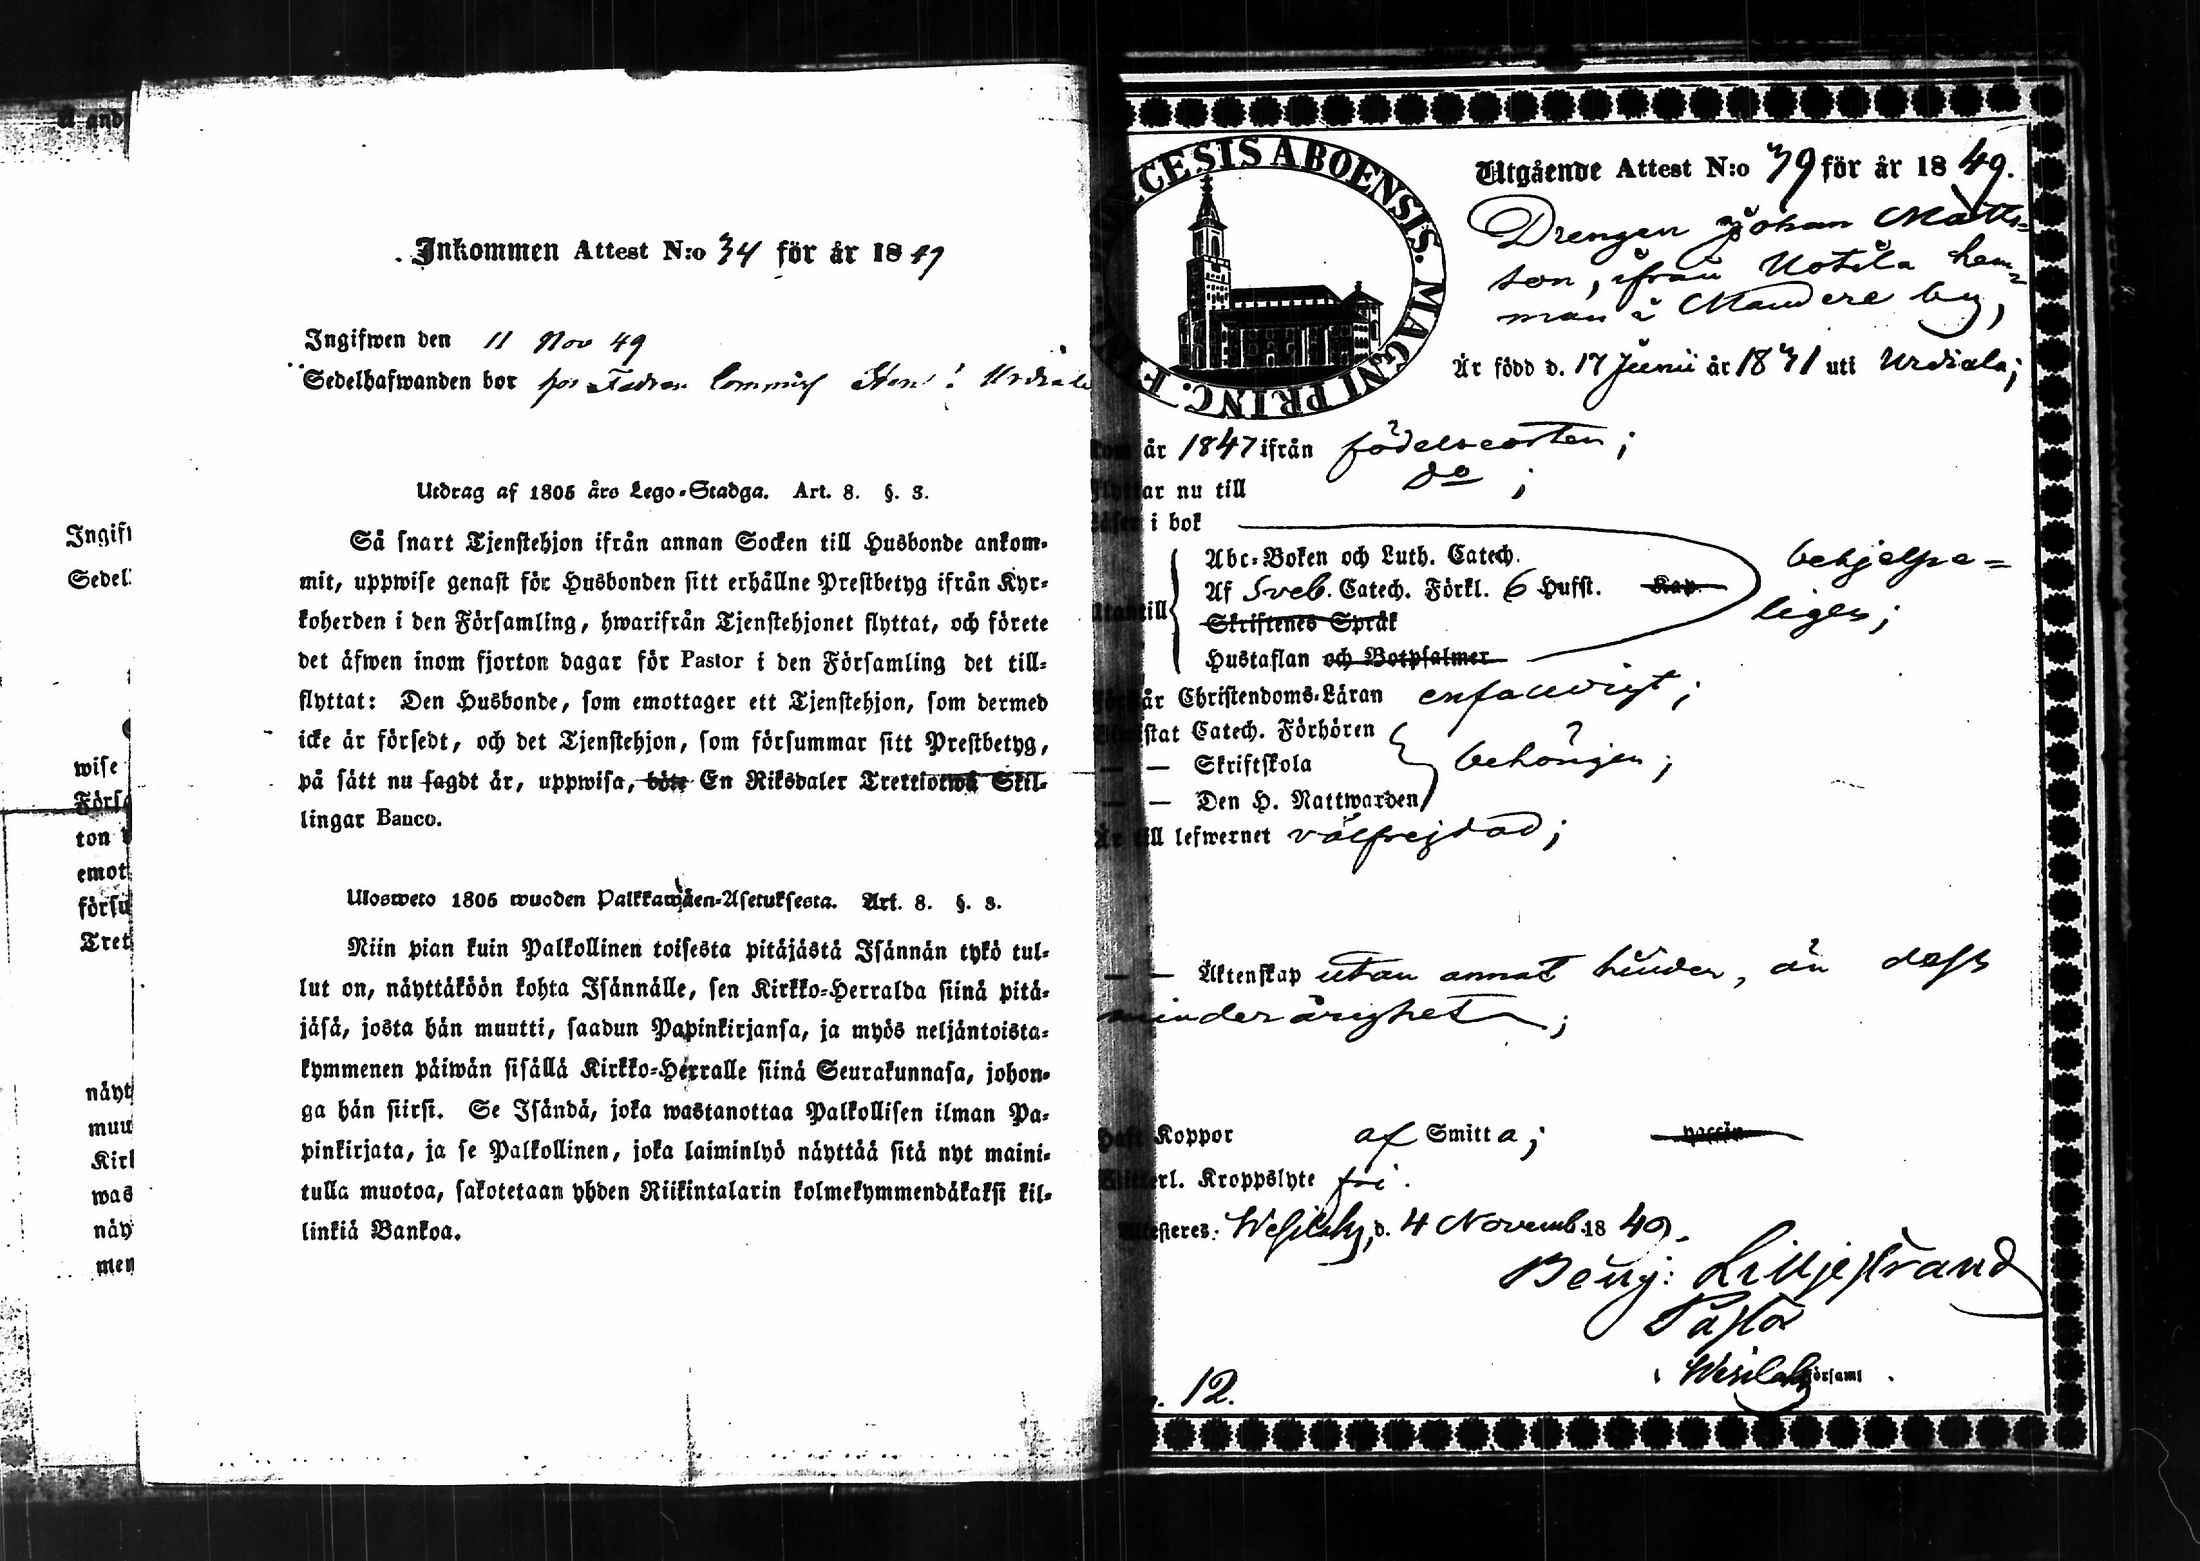 A and
Ingift
Sedel:
wise
Förs
ton
emot
försu
Tret
näyt
muu
Kirk
was
näy
men
Inkommen Attest N:o 34 för år 1849
Ingifwen den 11 Nov 49
Sedelhafwanden bor hos Fadren i Urdiala
Utdrag af 1805 års Lego-Stadga. Art. 8. §. 3.
Så snart Tjenstehjon ifrån annan Socken till Husbonde ankom-
mit, uppwise genast för Husbonden sitt erhållne Prestbetyg ifrån Kyr-
koherden i den Församling, hwarifrån Tjenstehjonet flyttat, och förete
det äfwen inom fjorton dagar för Pastor i den Församling det till-
flyttat: Den Husbonde, som emottager ett Tjenstehjon, som dermed
icke är försedt, och det Tjenstehjon, som försummar sitt Prestbetyg,
på sätt nu sagdt är, uppwisa, böte En Riksdaler Trettiotwå Skil-
lingar Banco.
Ulosweto 1805 wuoden Palkkawäen-Asetuksesta. Art. 8. §. 3.
Niin pian kuin Palkollinen toisesta pitäjästä Isännän tykö tul-
lut on, näyttäköön kohta Isännälle, sen Kirkko-Herralda siinä pitä-
jäsä, josta hän muutti, saadun Papinkirjansa, ja myös neljäntoista-
kymmenen päiwän sisällä Kirkko-Herralle siinä Seurakunnasa, johon-
ga hän siirsi. Se Isändä, joka wastanottaa Palkollisen ilman Pa-
pinkirjata, ja se Palkollinen, joka laiminlyö näyttää sitä nyt maini-
tulla muotoa, sakotetaan yhden Riikintalarin kolmekymmendäkaksi kil-
linkiä Bankoa.
CESIS ABOENSIS. MAGNI PRINC. FIN
Utgående Attest N:o 39 för år 1849.
Drengen Johan Matts-
son, ifrån Uotila hem-
man i Mandere by,
Är född d. 17 Junii år 1831 uti Urdiala;
Kom år 1847 ifrån födelseorten;
Flyttar nu till do;
Läser i bok
Abc-Boken och Luth. Catech.
Utantill Af Sveb. Catech. Förkl. 6 Hufst. Kap.
Skriftenes Språk
Hustaflan och Botpsalmer
behjelpe-
ligen;
Förstår Christendoms-Läran enfaldigt;
Bewistat Catech. Förhören
— — Skriftskola behörigen;
— — Den H. Nattwarden
Är till lefwernet välfrejdad;
— — Äktenskap utan annat hinder, än dess
minderårighet;
Haft Koppor af Smitta; vaccin
Witterl. Kroppslyte fri.
Attesteres: Wesilaks, d. 4 Novemb. 1849.
Benj: Lilljestrand
Pastor
i Wesilaks Församl.
12.